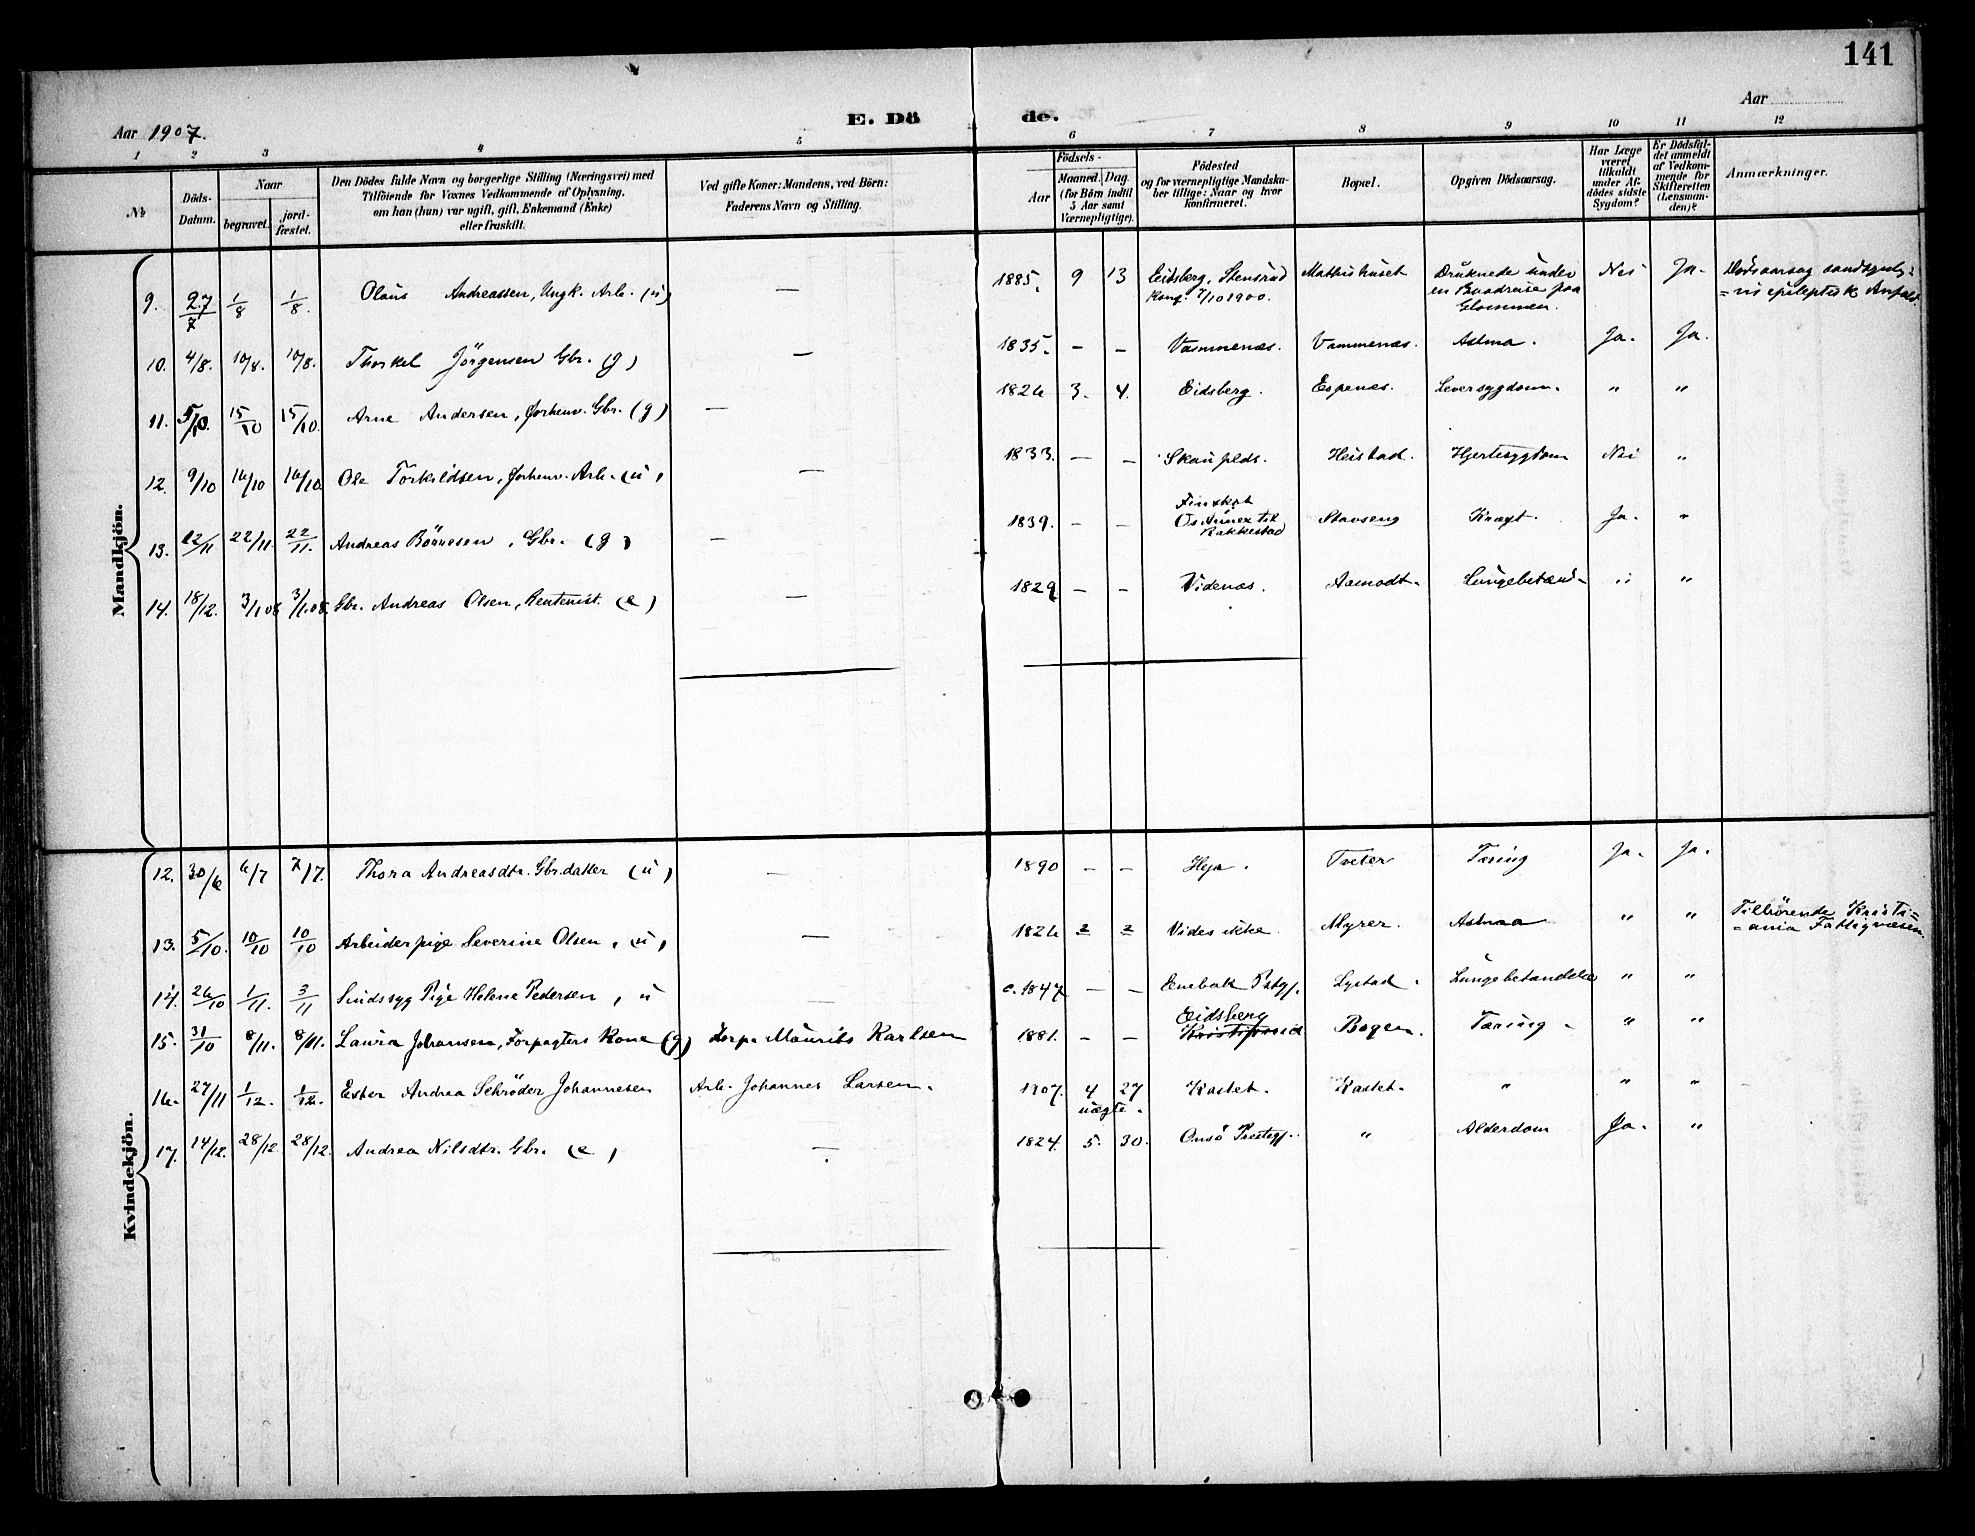 141
Aar 1907.
E. Dö de.
Aar
1 2 3 4 5 6 7 8 9 10 11 12
№
Döds-Datum.
Naar
begravet.
jord-fæstet.
Den Dödes fulde Navn og borgerlige Stilling (Næringsvei) med
Tilföiende for Voxnes Vedkommende af Oplysning,
om han (hun) var ugift, gift, Enkemand (Enke)
eller fraskilt.
Ved gifte Koner: Mandens, ved Börn:
Faderens Navn og Stilling.
Födsels-
Aar
Maaned. Dag.
(for Börn indtil
5 Aar samt
Værnepligtige).
Födested
og for værnepligtige Mandska-
ber tillige: Naar og hvor
konfirmeret.
Bopæl.
Opgiven Dödsaarsag.
Har Læge
været
tilkaldt
under Af-
dödes sidste
Sygdom?
Er Dödsfal-
det anmeldt
af Vedkom-
mende for
Skifteretten
(Lensman-
den)?
Anmærkninger.
Mandkjön.
9. 27/7 1/8 1/8. Olaus Andreassen, Ungk. Arb. (u) — 1885. 9 13 Eidsberg, Stensrud Mathishuset Druknede under Nei Ja. Dödsaarsag sandsynlig=
Konf. 7/10 1900. en Baadreise paa =vis epileptisk Anfald.
Glommen.
10. 4/8. 10/8. 10/8. Thorkel Jörgensen Gbr. (g) — 1835. — — Vammenæs. Vammenæs. Astma. Ja. Ja.
11. 5/10. 15/10 15/10. Arne Andersen, forhenv. Gbr. (g) — 1826 3. 4. Eidsberg. Espenæs. Leversygdom. " "
12. 9/10 16/10 16/10. Ole Torkildsen, forhenv. Arb. (u) — 1833. — — Skauplds. Heistad. Hjertesygdom Nei "
13. 12/11 22/11. 22/11. Andreas Börresen, Gbr. (g) — 1839. — — Os Annex til Stavseng Kræft. Ja. "
Rakkestad
14. 18/12. 3/1 08 3/1.08. Gbr. Andreas Olsen, Rentenist. (e) — 1829 — — Videnæs. Aamodt. Lungebetænd- " "
Kvindekjön.
12. 30/6 6/7 7/7. Thora Andreasdtr. Gbr.datter (u) — 1890 — — Heja. Tveter Tæring Ja. Ja.
13. 5/10. 10/10 10/10 Arbeiderpige Severine Olsen, (u) — 1826 2 2 Vides ikke Myrer. Astmaa " " Tilhörende Kristi=
=ania Fattigvæsen.
14. 26/10 1/11. 3/11 Sindssyg Pige Helene Pedersen, u — c. 1847 — — Enebak Pstgj. Lystad. Lungebetændelse " "
15. 31/10 8/11. 8/11. Laura Johansen, Forpagters Kone (g) Forp. Maurits Karlsen 1881. — — Eidsberg Bogen. Tæring " "
16. 27/11 1/12. 1/12. Ester Andrea Schröder Johannesen Arb. Johannes Larsen. 1907. 4 27 Kastet. Kastet. " " "
uægte.
17. 14/12. 28/12 28/12. Andrea Nilsdtr. Gbr. (e) — 1824. 5. 30. Onsö Prestegj. " Alderdom Ja. "